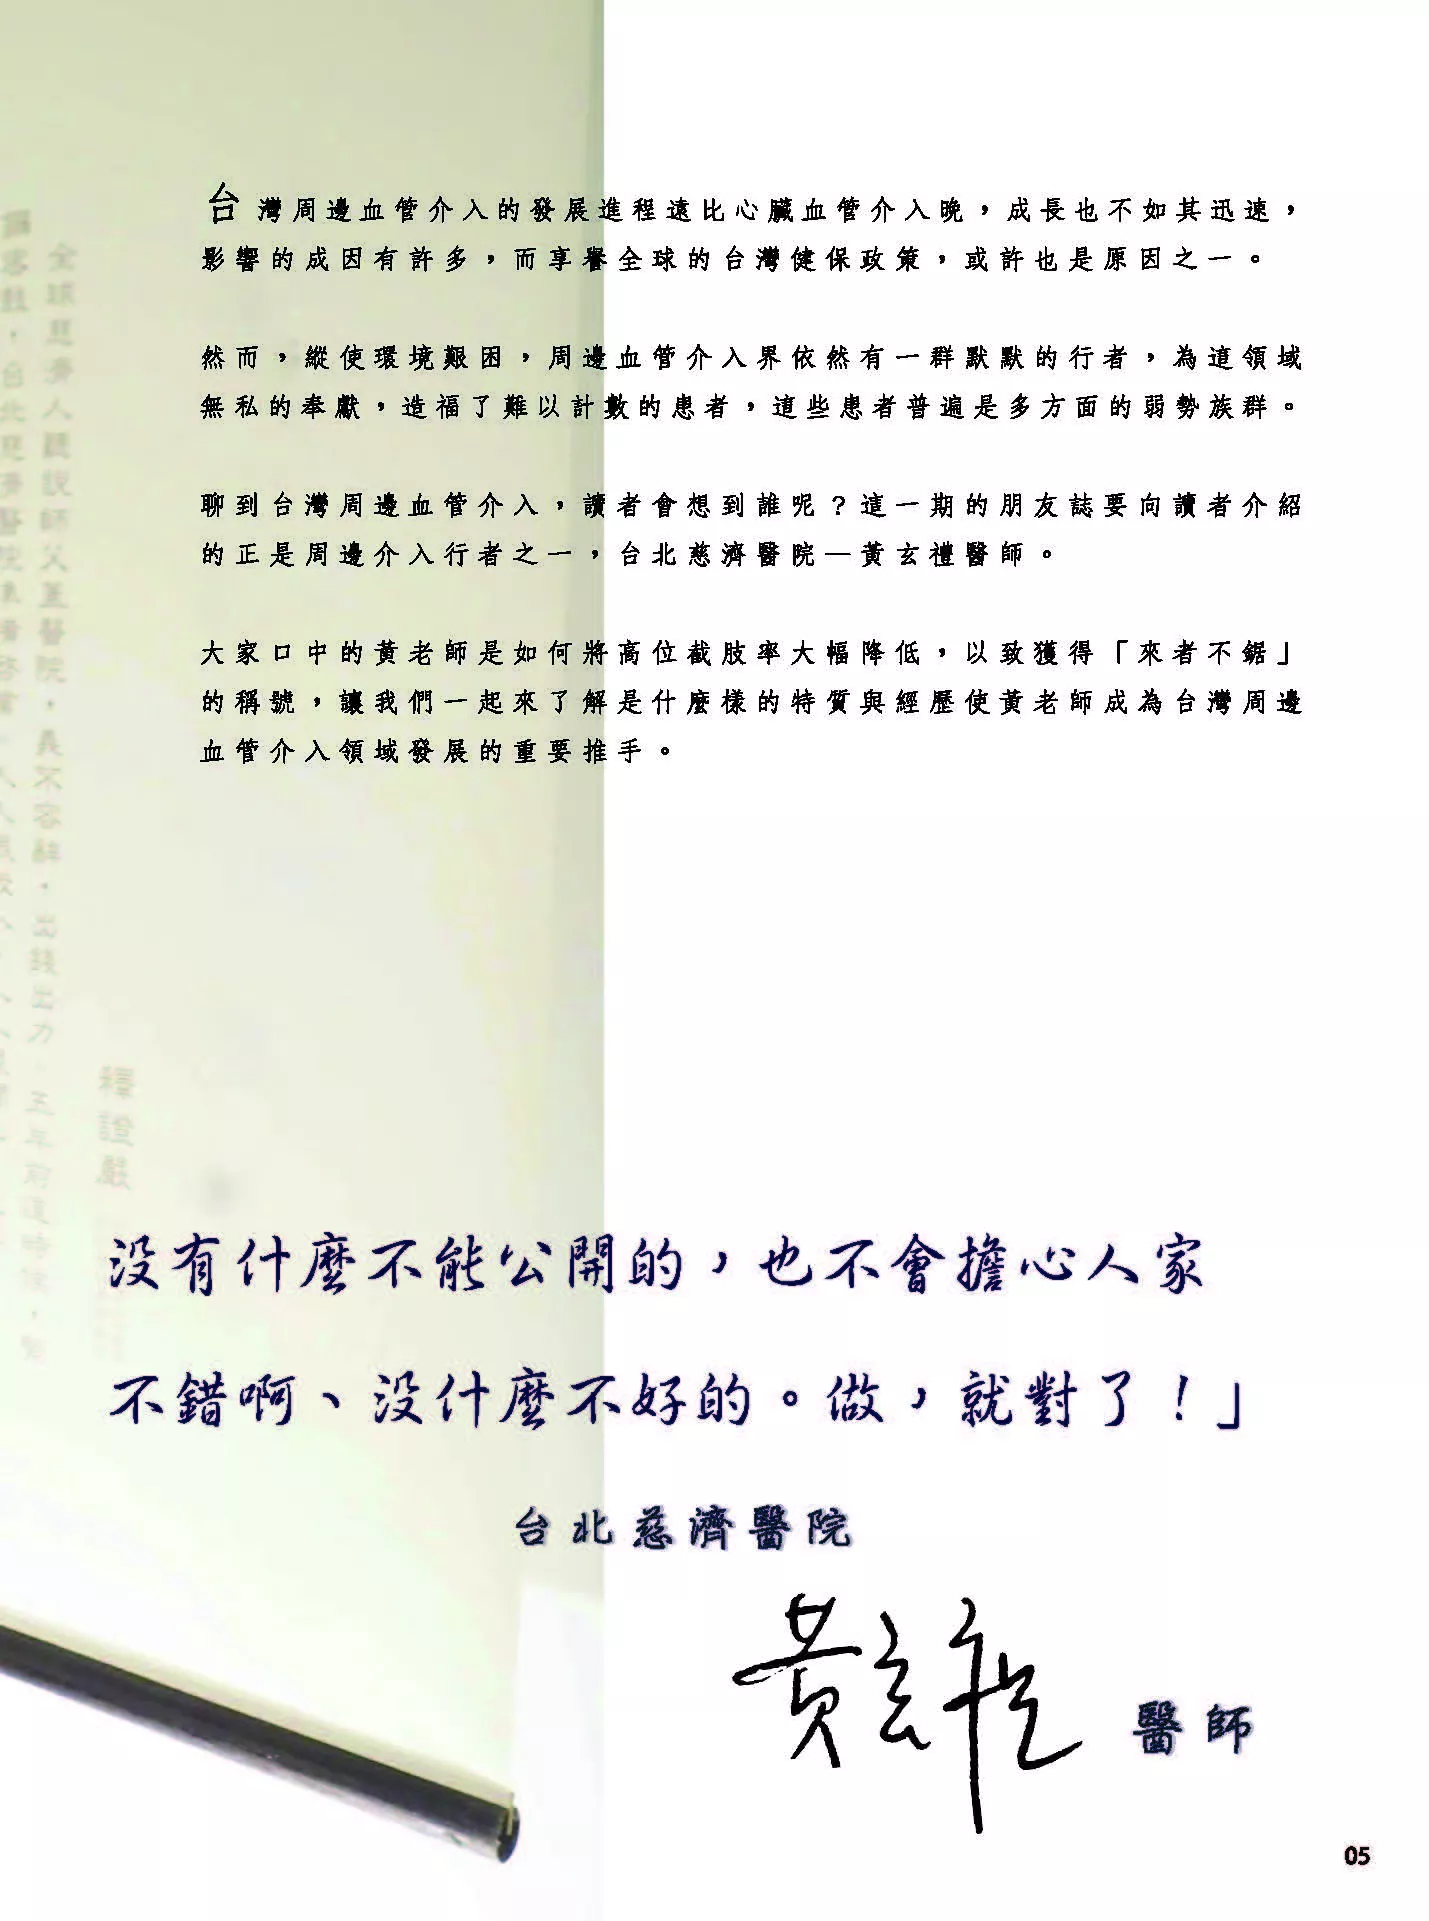 台灣周邊血管介入的發展進程遠比心臟血管介入晚，成長也不如其迅速，
影響的成因有許多，而享譽全球的台灣健保政策，或許也是原因之一。
然而，縱使環境艱困，周邊血管介入界依然有一群默默的行者，為這領域
無私的奉獻，造福了難以計數的患者，這些患者普遍是多方面的弱勢族群。
聊到台灣周邊血管介入，讀者會想到誰呢？這一期的朋友誌要向讀者介紹
的正是周邊介入行者之一，台北慈濟醫院—黃玄禮醫師。
大家口中的黃老師是如何將高位截肢率大幅降低，以致獲得「來者不鋸」
的稱號，讓我們一起來了解是什麼樣的特質與經歷使黃老師成為台灣周邊
血管介入領域發展的重要推手。
全球慈濟人聽說師父蓋醫院，義不容辭，出錢出力
釋證嚴
沒有什麼不能公開的，也不會擔心人家
不錯啊、沒什麼不好的。做，就對了！」
台北慈濟醫院
黃玄禮 醫師
05